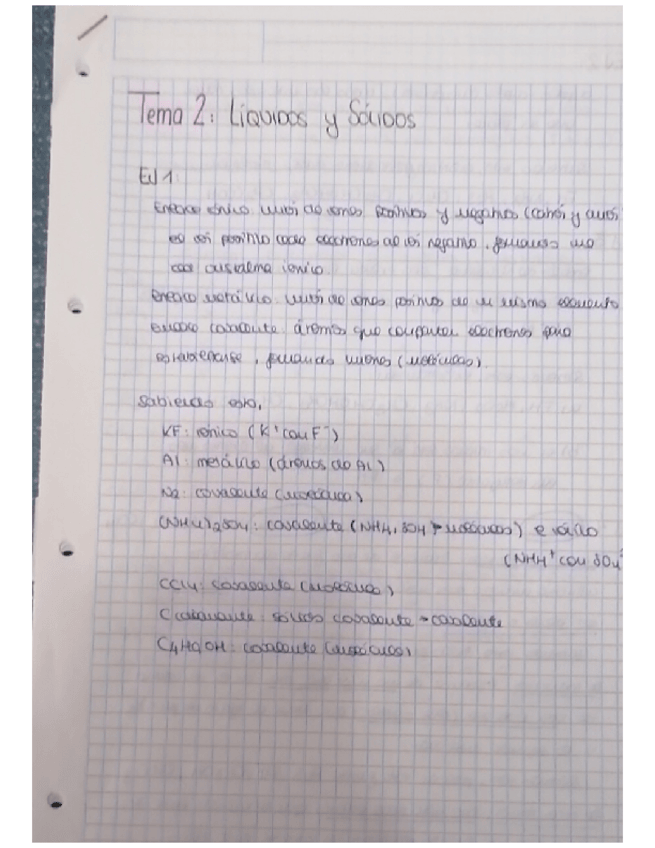 Tema 2: Líquidos y Sólidos
EJ 1
Enlace iónico unión de iones positivos y negativos (catión y anión
el ion positivo cede electrones al ion negativo, formando una
red cristalina iónica.
Enlace metálico unión de iones positivos de un mismo elemento
Enlace covalente átomos que comparten electrones para
estabilizarse, formando uniones (moléculas).
Sabiendo esto,
KF: iónico (K⁺ con F⁻)
Al: metálico (átomos de Al)
N2: covalente (moléculas)
(NH4)2SO4: covalente (NH4, SO4 moléculas) e iónico
(NH4⁺ con SO4
CCl4: covalente (moléculas)
C diamante: sólido covalente covalente
C4H9OH: covalente (moléculas)